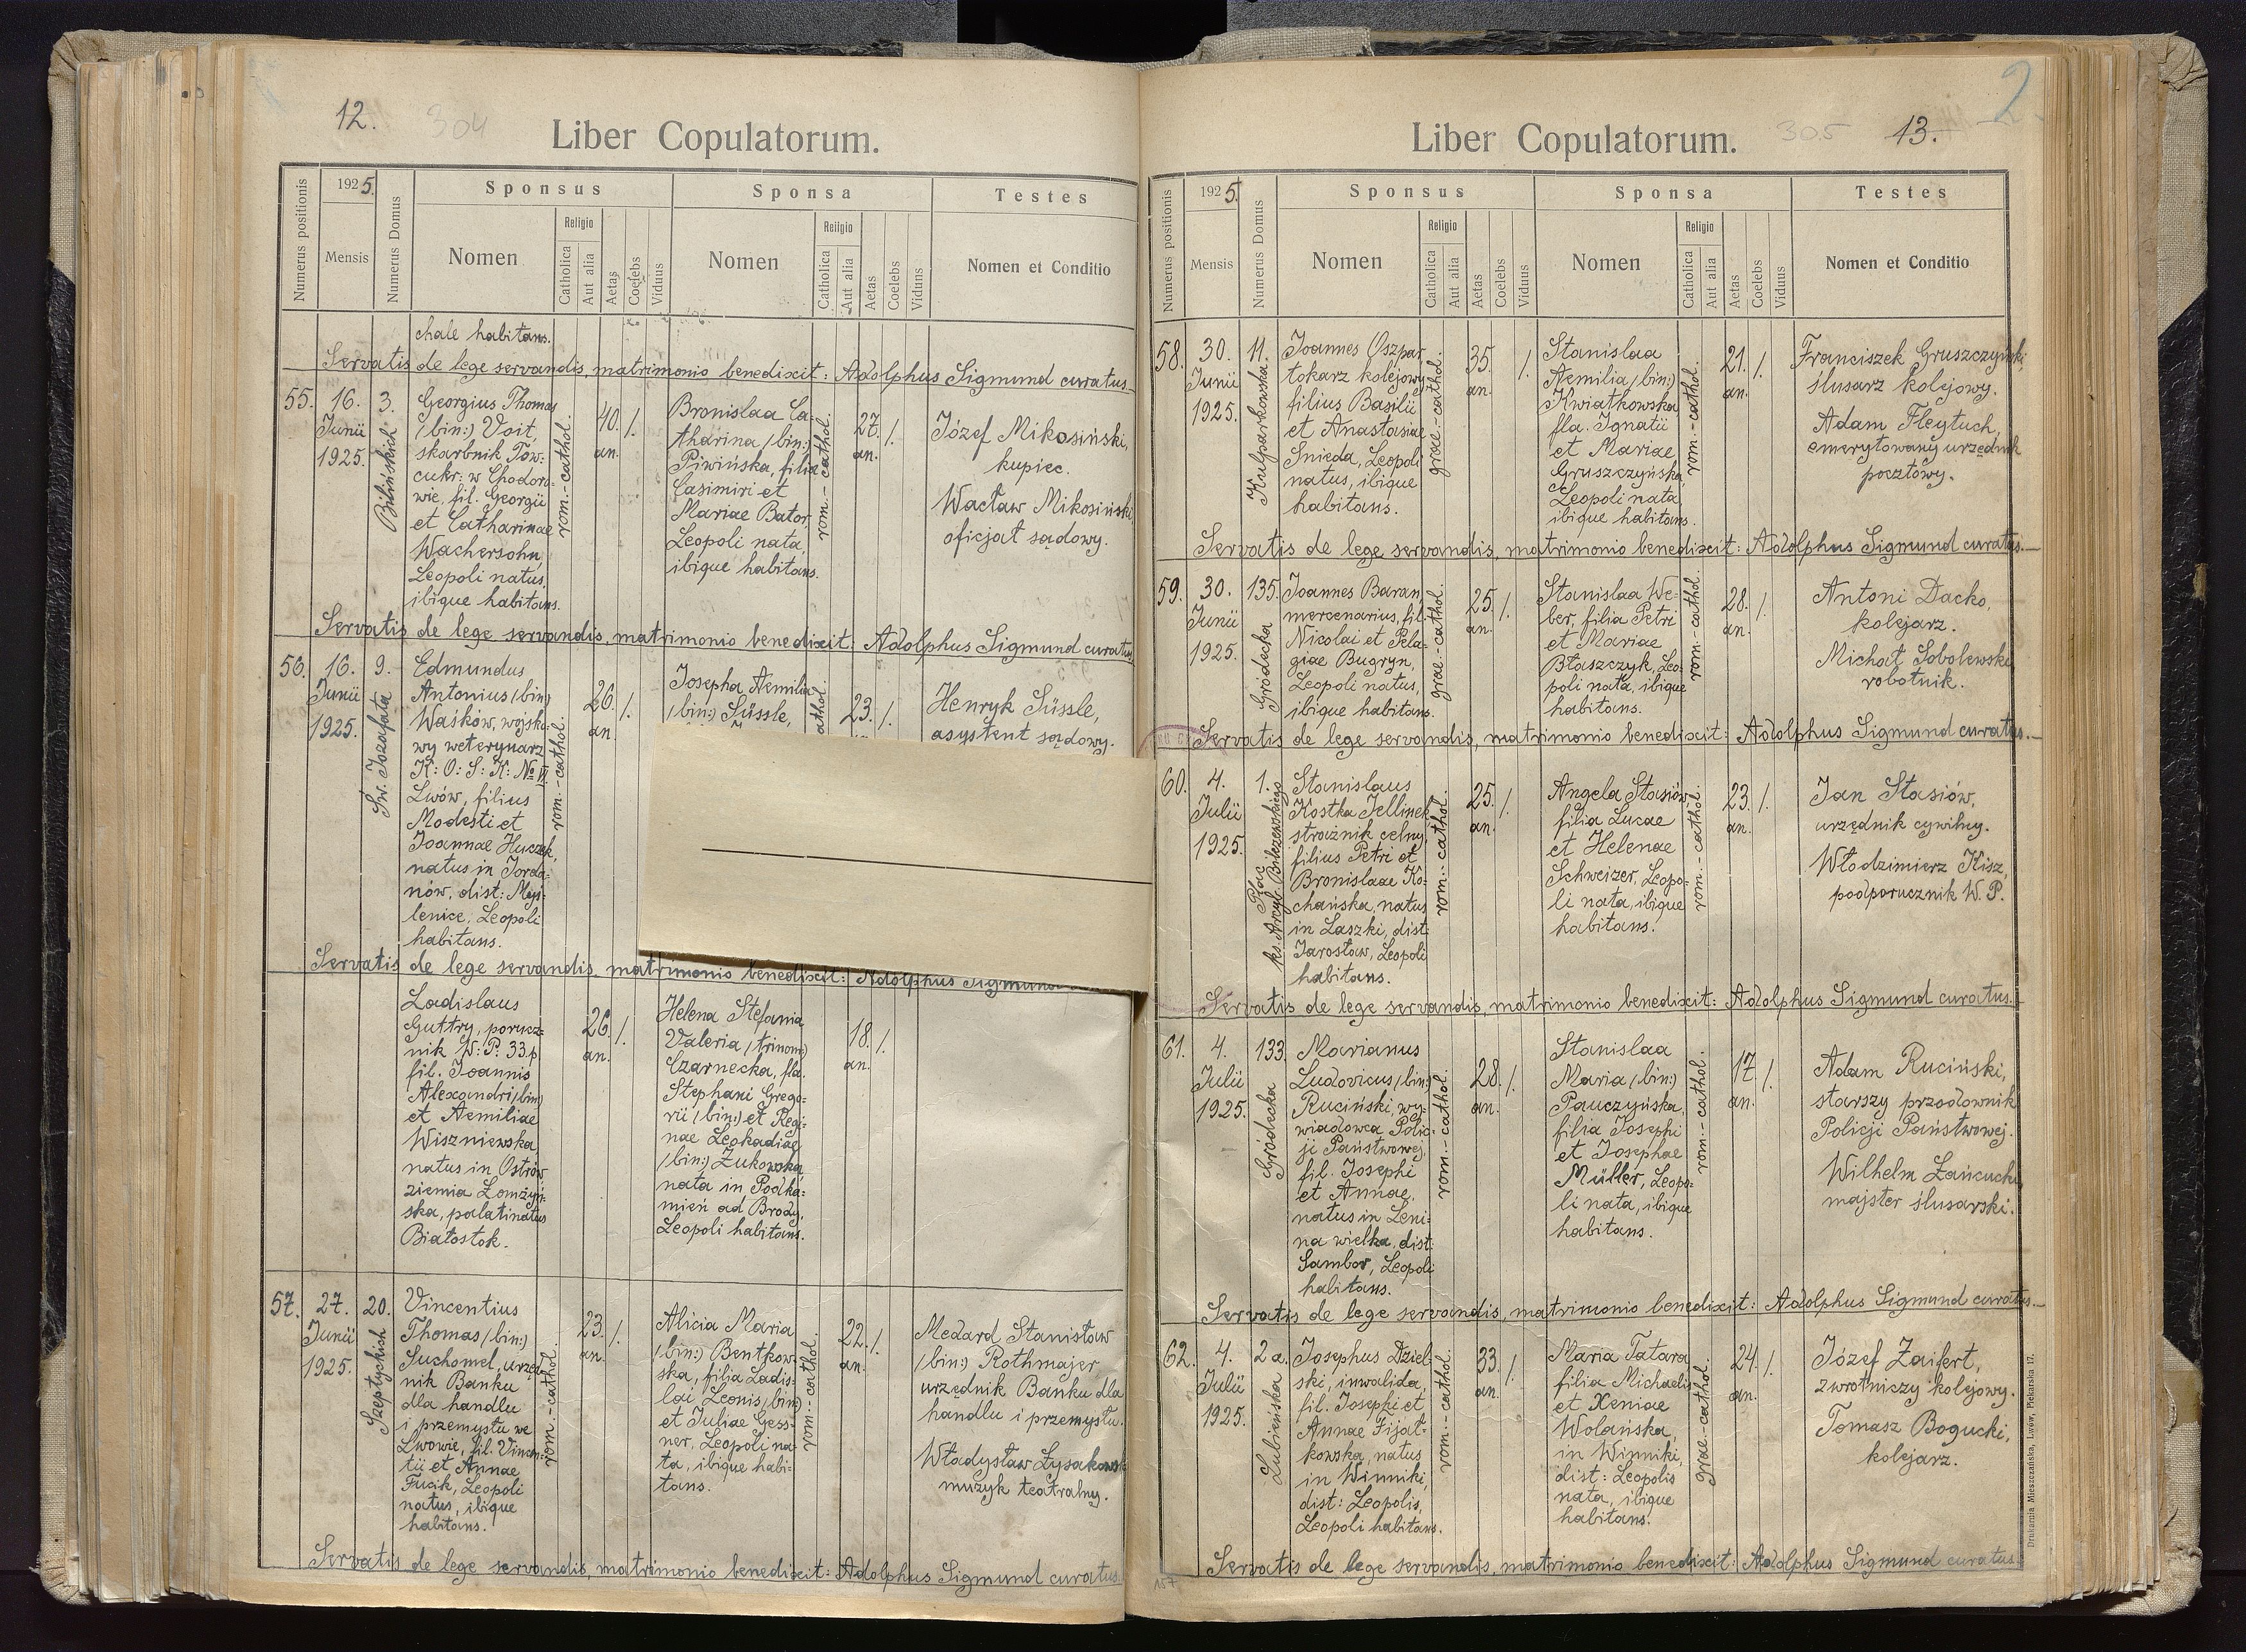 12.
304
Liber Copulatorum.
Numerus positionis
1925.
Mensis
Numerus Domus
Sponsus
Nomen
Religio
Catholica
Aut alia
Aetas
Coelebs
Viduus
Sponsa
Nomen
Religio
Catholica
Aut alia
Aetas
Coelebs
Viduus
Testes
Nomen et Conditio
chale habitans.
Servatis de lege servandis, matrimonio benedixit: Adolphus Sigmund curatus.
55.
16.
Junii
1925.
3.
Bilińskich
Georgius Thomas
(bin:) Voit,
skarbnik Tow:
cukr: w Chodoro-
wie, fil. Georgii
et Catharinae
Wachersohn,
Leopoli natus,
ibique habitans.
rom.-cathol.
40.
an.
/.
Bronislaa Ca-
tharina (bin:)
Piwińska, filia
Casimiri et
Mariae Bator,
Leopoli nata,
ibique habitans.
rom.-cathol.
27.
an.
/.
Józef Mikosiński,
kupiec.
Wacław Mikosiński,
oficjał sądowy.
Servatis de lege servandis, matrimonio benedixit: Adolphus Sigmund curatus.
56.
16.
Junii
1925.
9.
Św. Jozafata
Edmundus
Antonius (bin)
Waśków, wojsko-
wy weterynarz
K: O: S: K: № VI.
Lwów, filius
Modesti et
Joannae Huczek,
natus in Jorda-
nów, dist: Myś-
lenice, Leopoli
habitans.
rom.-cathol.
26.
an.
/.
Josepha Aemilia
(bin:) Süssle,
23.
/.
Henryk Süssle,
asystent sądowy.
Servatis de lege servandis, matrimonio benedixit: Adolphus Sigmund
Ladislaus
Guttry, porucz-
nik W: P: 33.p.
fil. Joannis
Alexandri (bin)
et Aemiliae
Wiszniewska,
natus in Ostrów
ziemia Łomżyń-
ska, palatinatus
Białostok.
26.
an.
/.
Helena Stefania
Valeria (trinom:)
Czarnecka, fla.
Stephani Grego-
rii (bin:) et Regi-
nae Leokadiae
(bin:) Żukowska,
nata in Podka-
mień ad Brody,
Leopoli habitans.
18.
an.
/.
57.
27.
Junii
1925.
20.
Szeptyckich
Vincentius
Thomas (bin:)
Suchomel, urzęd-
nik Banku
dla handlu
i przemysłu we
Lwowie, fil. Vincen-
tii et Annae
Fucik, Leopoli
natus, ibique
habitans.
rom.-cathol.
23.
an.
/.
Alicia Maria
(bin:) Bentkow-
ska, filia Ladis-
lai Leonis (bin)
et Juliae Gess-
ner, Leopoli na-
ta, ibique habi-
tans.
rom.-cathol.
22.
an.
/.
Medard Stanisław
(bin:) Rothmajer,
urzędnik Banku dla
handlu i przemysłu.
Władysław Łysakowski
muzyk teatralny.
Servatis de lege servandis, matrimonio benedixit: Adolphus Sigmund curatus.
2
Liber Copulatorum.
305
13.
Numerus positionis
1925.
Mensis
Numerus Domus
Sponsus
Nomen
Religio
Catholica
Aut alia
Aetas
Coelebs
Viduus
Sponsa
Nomen
Religio
Catholica
Aut alia
Aetas
Coelebs
Viduus
Testes
Nomen et Conditio
58.
30.
Junii
1925.
11.
Kulparkowska
Joannes Oszpar,
tokarz kolejowy,
filius Basilii
et Anastasiae
Śnieda, Leopoli
natus, ibique
habitans.
grae.-cathol.
35.
an.
/.
Stanislaa
Aemilia (bin:)
Kwiatkowska
fla. Ignatii
et Mariae
Gruszczyńska,
Leopoli nata,
ibique habitans.
rom.-cathol.
21.
an.
/.
Franciszek Gruszczyński,
ślusarz kolejowy.
Adam Fleytuch,
emerytowany urzędnik
pocztowy.
Servatis de lege servandis, matrimonio benedixit: Adolphus Sigmund curatus.
59.
30.
Junii
1925.
135.
Gródecka
Joannes Baran,
mercenarius, fil.
Nicolai et Pela-
giae Bugryn,
Leopoli natus,
ibique habitans.
grae.-cathol.
25.
an.
/.
Stanislaa We-
ber, filia Petri
et Mariae
Błaszczyk, Leo-
poli nata, ibique
habitans.
rom.-cathol.
28.
an.
/.
Antoni Dacko,
kolejarz.
Michał Sobolewski,
robotnik.
Servatis de lege servandis, matrimonio benedixit: Adolphus Sigmund curatus.
60.
4.
Julii
1925.
1.
Plac
ks. Arcyb. Bilczewskiego
Stanislaus
Kostka Jellinek
strażnik celny,
filius Petri et
Bronislaae Ko-
chańska, natus
in Laszki, dist:
Jarosław, Leopoli
habitans.
rom.-cathol.
25.
an.
/.
Angela Stasiów,
filia Lucae
et Helenae
Schweizer, Leopo-
li nata, ibique
habitans.
rom.-cathol.
23.
an.
/.
Jan Stasiów,
urzędnik cywilny.
Włodzimierz Kisz,
podporucznik W. P.
Servatis de lege servandis, matrimonio benedixit: Adolphus Sigmund curatus.
61.
4.
Julii
1925.
133.
Gródecka
Marianus
Ludovicus (bin:)
Ruciński, wy-
wiadowca Polic-
ji Państwowej,
fil. Josephi
et Annae,
natus in Leni-
na wielka, dist:
Sambor, Leopoli
habitans.
rom.-cathol.
28.
an.
/.
Stanislaa
Maria (bin:)
Pauczyńska,
filia Josephi
et Josephae
Müller, Leopo-
li nata, ibique
habitans.
rom.-cathol.
17.
an.
/.
Adam Ruciński,
starszy przodownik
Policji Państwowej.
Wilhelm Łańcucki,
majster ślusarski.
Servatis de lege servandis, matrimonio benedixit: Adolphus Sigmund curatus.
62.
4.
Julii
1925.
2a.
Lubieńska
Josephus Dziel-
ski, inwalida,
fil. Josephi et
Annae Fijał-
kowska, natus
in Winniki,
dist: Leopolis,
Leopoli habitans.
rom.-cathol.
33.
an.
/.
Maria Tatara
filia Michaelis
et Xeniae
Wolańska,
in Winniki,
dist: Leopolis
nata, ibique
habitans.
grae.-cathol.
24.
an.
/.
Józef Zaifert,
zwrotniczy kolejowy.
Tomasz Bogucki,
kolejarz.
Servatis de lege servandis, matrimonio benedixit: Adolphus Sigmund curatus.
Drukarnia Mieszczańska, Lwów, Piekarska 17.
157